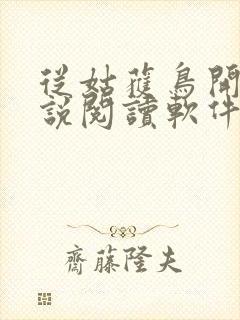 從姑蘿鳥開
說閱讀軟件
齋藤隆夫